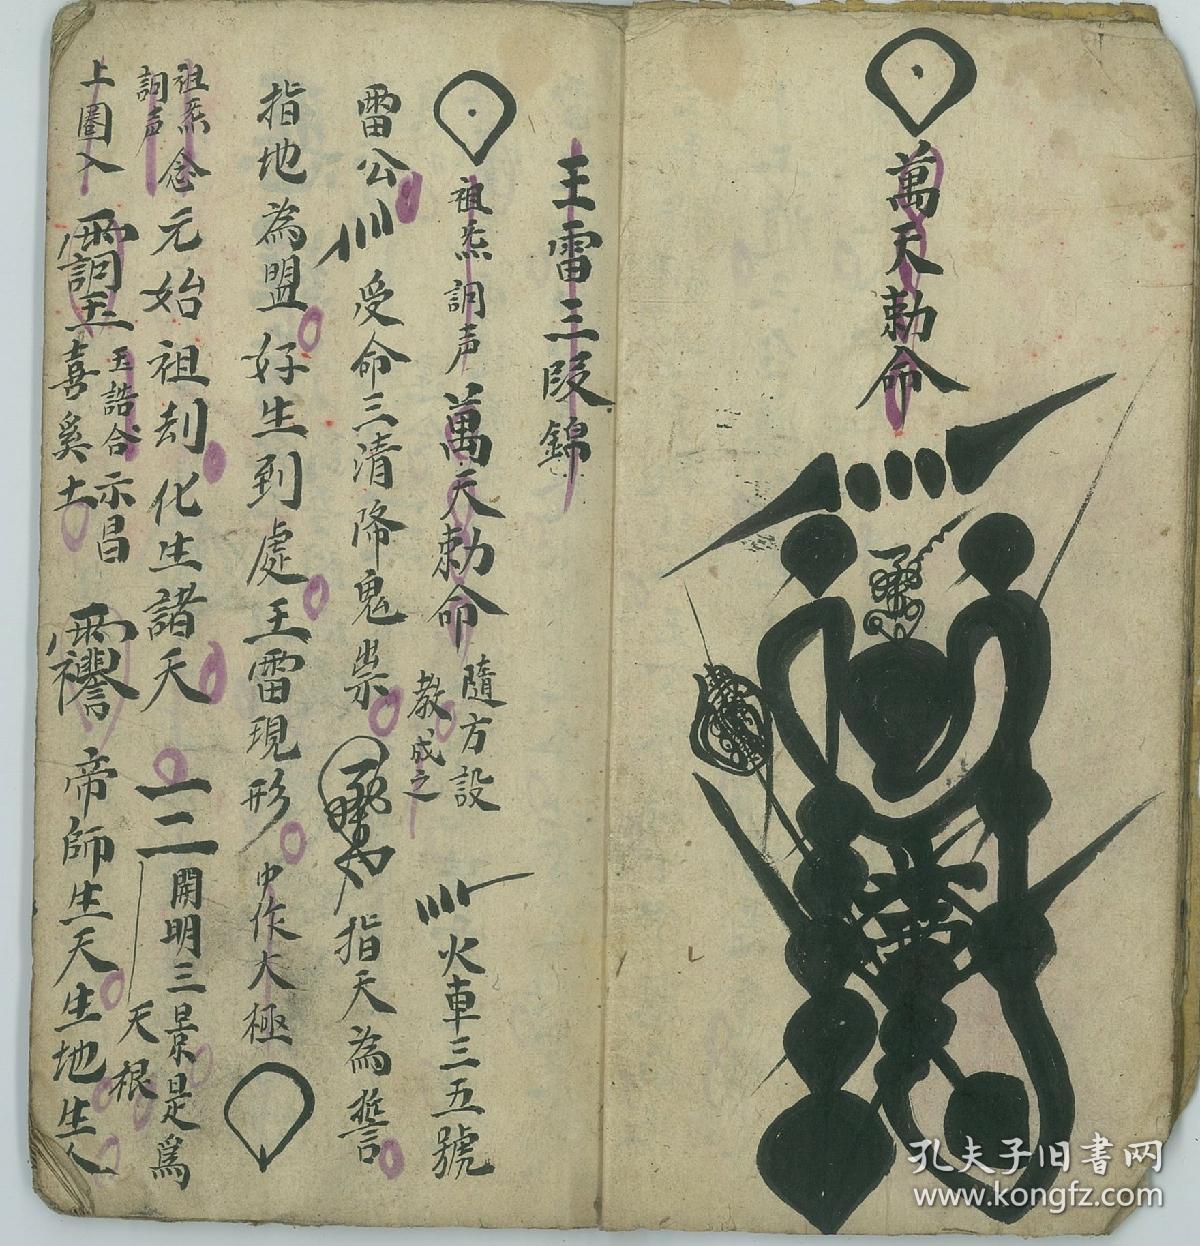 萬天勅命
王雷三段錦
祖炁 詞声 萬天勅命 隨方設教成之 火車三五號
雷公 受命三清降鬼祟 指天為誓
指地為盟好生到處王雷現形 中作大極
祖炁 詞声 念元始祖刼化生諸天 一二 開明三景是為天根
上圈入 玉誥合 示昌 喜奚土 帝師生天生地生人
孔夫子旧书网
www.kongfz.com